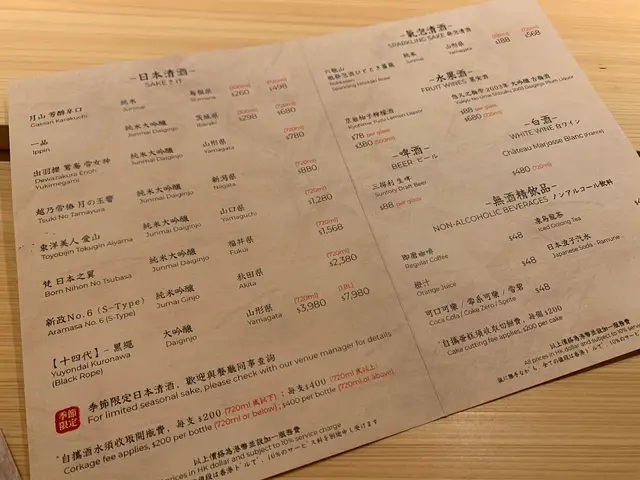 ~日本清酒~
SAKE さけ
月山 芳醇辛口 純米 島根県 (300ml) (720ml)
Gassan Karakuchi Junmai Shimane $260 $498
一品 純米大吟釀 茨城県 (300ml) (720ml)
Ippin Junmai Daiginjo Ibaraki $298 $680
出羽櫻 純米大吟釀 山形県 (720ml)
Dewazakura Junmai Daiginjo Yamagata $780
Yukimegami
越乃雪椿 月の玉響 純米大吟釀 新潟県 (720ml)
Tsuki No Tamayura Junmai Daiginjo Niigata $880
東洋美人 愛山 純米大吟釀 山口県 (720ml)
Toyobijin Tokugin Aiyama Junmai Daiginjo Yamaguchi $1,280
梵 日本之翼 純米大吟釀 福井県 (720ml)
Born Nihon No Tsubasa Junmai Daiginjo Fukui $1,568
新政No.6 (S-Type) 純米吟釀 秋田県 (720ml)
Aramasa No. 6 (S-Type) Junmai Ginjo Akita $2,380
【十四代】- 黒繩 大吟釀 山形県 (720ml) (1.8L)
Yuyondai Kuronawa Daiginjo Yamagata $3,980 $7,980
(Black Rope)
季節限定
季節限定日本清酒，歡迎與餐廳同事查詢
For limited seasonal sake, please check with our venue manager for details
*自攜酒水須收取開瓶費，每支$200 (720ml 或以下)；每支$400 (720ml 或以上)
Corkage fee applies, $200 per bottle (720ml or below); $400 per bottle (720ml or above)
以上價格為港幣並設加一服務費
prices in HK dollar and subject to 10% service charge
~氣泡清酒~
SPARKLING SAKE 発泡清酒
純米 山形県
Junmai Yamagata $188 $568
~水果酒~
FRUIT WINES 果実酒
京都柚子檸檬酒
Kyohime Yuzu Lemon Liquor
$78 per glass
$380
2003年 大吟釀 古梅酒
Daiginjo Plum Liquor
$88 per glass
$680
~啤酒~
BEER ビール
三得利 生啤
Suntory Draft Beer
$88 per glass
~白酒~
WHITE WINE 白ワイン
Château Marjosse Blanc (France)
$480 (720ml)
~無酒精飲品~
NON-ALCOHOLIC BEVERAGES ノンアルコール飲料
即磨咖啡 凍烏龍茶
Regular Coffee $48 Iced Oolong Tea $48
橙汁 日本波子汽水
Orange Juice $48 Japanese Soda - Ramune $48
可口可樂 / 零系可樂 / 雪碧
Coca Cola / Coke Zero / Sprite $48
*自攜蛋糕須收取切餅費，每個$200
Cake cutting fee applies, $200 per cake
以上價格為港幣並設加一服務費
All prices in HK dollar and subject to 10%